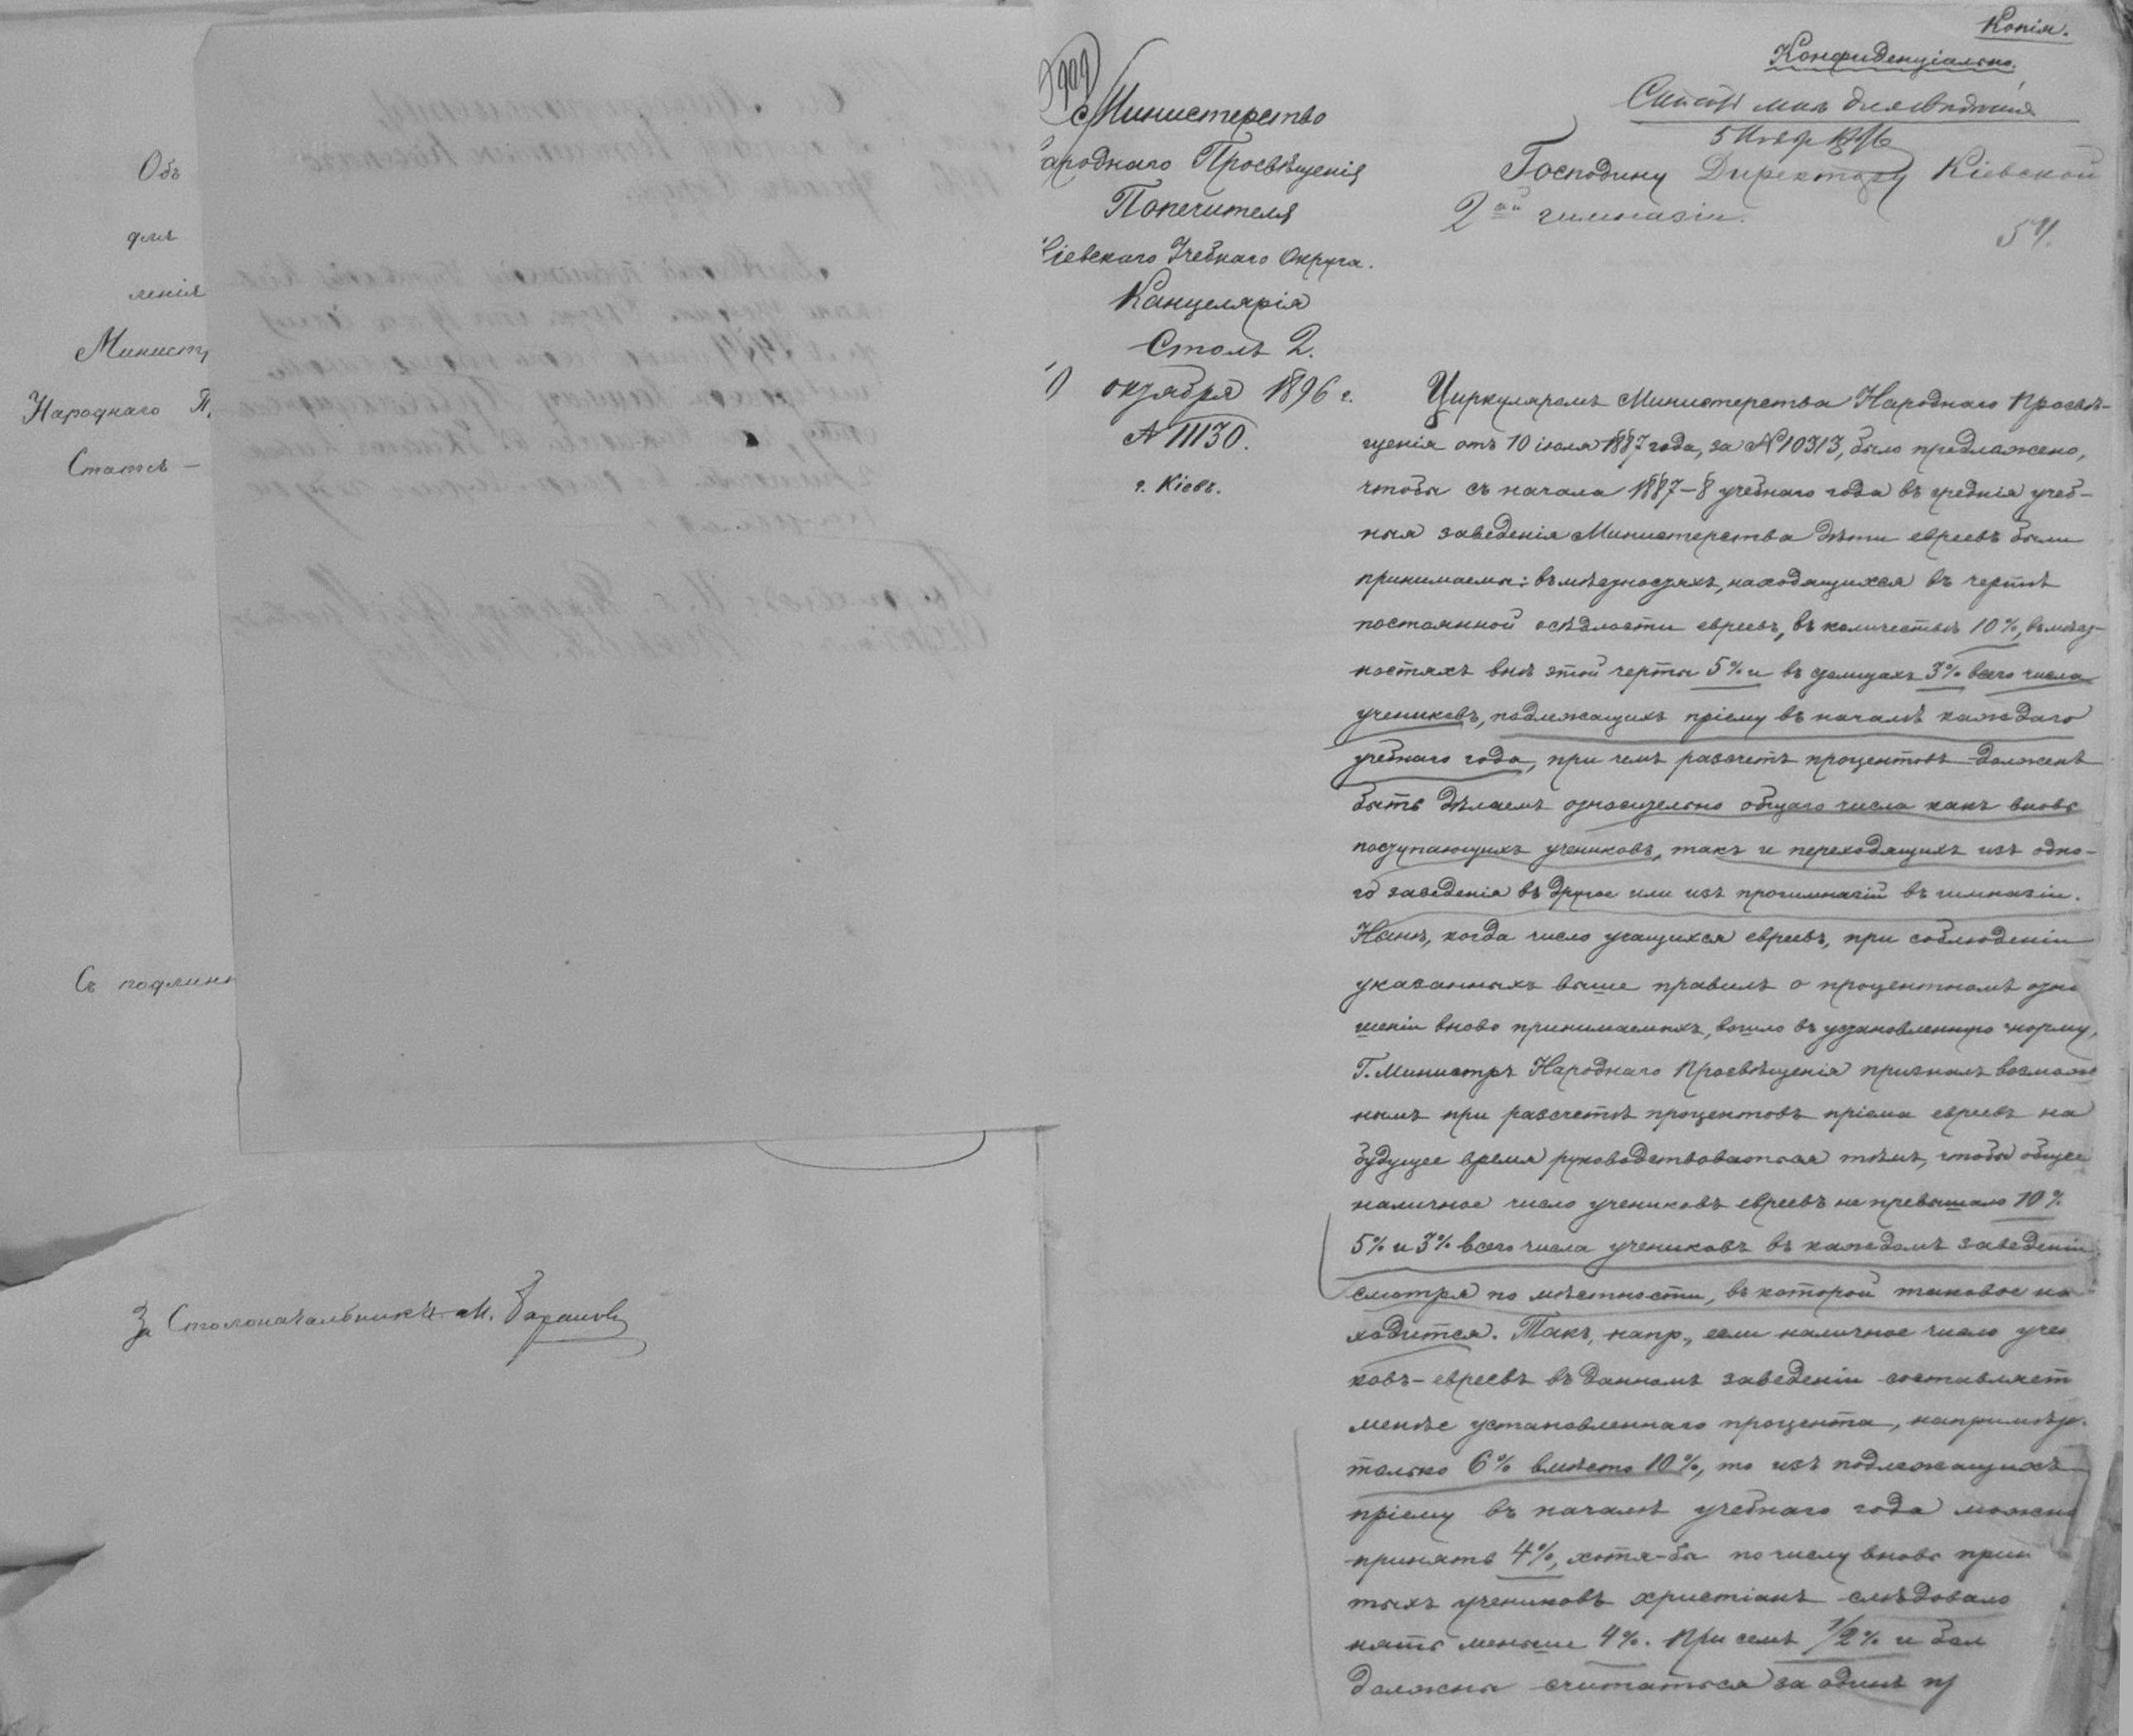 Объ
для
ленія
Министр
Народнаго П
Статсъ —
Съ подлинн
За Столоначальника М.
Копія.
Конфиденціально.
5 Ноябр 1896
Министерство
ароднаго Просвѣщенія
Попечителя
Кіевскаго Учебнаго Округа.
Канцелярія
Столъ 2.
октября 1896 г.
№ 11130.
г. Кіевъ.
Господину Директору Кіевской
2ой гимназіи.
Циркуляромъ Министерства Народнаго Просвѣ-
щенія отъ 10 іюля 1887 года, за № 10313, было предложено,
чтобы съ начала 1887-8 учебнаго года въ среднія учеб-
ныя заведенія Министерства дѣти евреевъ были
принимаемы: въ мѣстностяхъ, находящихся въ чертѣ
постоянной осѣдлости евреевъ, въ количествѣ 10%, въ мѣст-
ностяхъ внѣ этой черты 5% и въ столицахъ 3% всего числа
учениковъ, подлежащихъ пріему въ началѣ каждаго
учебнаго года, при чемъ разсчетъ процентовъ долженъ
быть дѣлаемъ относительно общаго числа какъ вновь
поступающихъ учениковъ, такъ и переходящихъ изъ одно-
го заведенія въ другое или изъ прогимназій въ гимназіи.
Нынѣ, когда число учащихся евреевъ, при соблюденіи
указанныхъ выше правилъ о процентномъ отно
шеніи вновь принимаемыхъ, вошло въ установленную норму,
Г. Министръ Народнаго Просвѣщенія призналъ возмож
нымъ при разсчетѣ процентовъ пріема евреевъ на
будущее время руководствоваться тѣмъ, чтобы общее
наличное число учениковъ евреевъ не превышало 10%
5% и 3% всего числа учениковъ въ каждомъ заведеніи,
смотря по мѣстности, въ которой таковое на
ходится. Такъ, напр., если наличное число учен
ковъ-евреевъ въ данномъ заведеніи составляет
менѣе установленнаго процента, напримѣр.
только 6% вмѣсто 10%, то изъ подлежащихъ
пріему въ началѣ учебнаго года можно
принять 4%, хотя-бы по числу вновь прин
тыхъ учениковъ христіанъ слѣдовало
нять меньше 4%. При семъ 1/2% и бол
должны считаться за одинъ пр